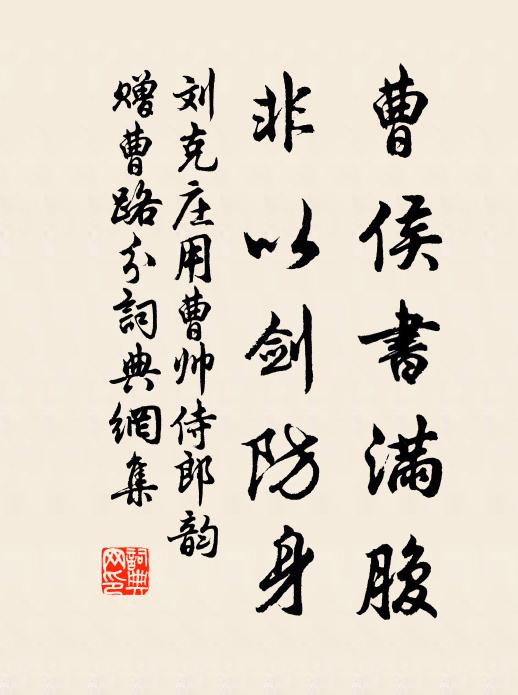 曹侯書满腹
非以剑防身
刘克庄用曹帅侍郎韵
赠曹路分詞典網集
詞典
网印